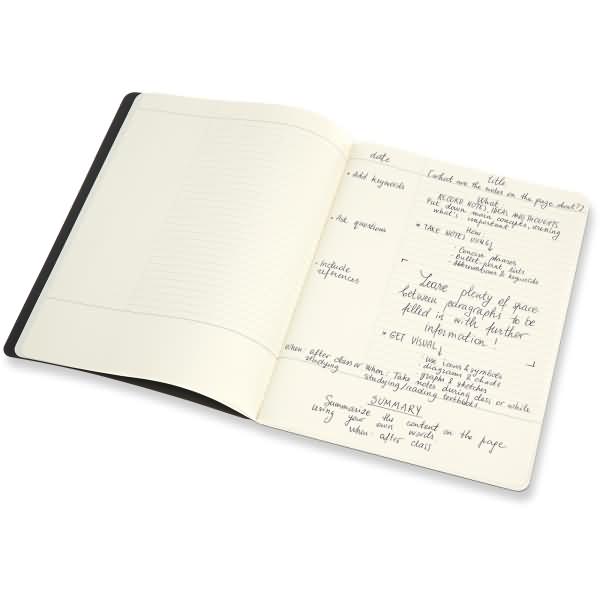 date
Title
(what are the notes on the page about?)
• Add keywords
• Ask questions
• Include
references
What
RECORD NOTES, IDEAS AND THOUGHTS
Put down main concepts, evening
what's important
How:
* TAKE NOTES USING
· Concise phrases
· Bullet-point lists
· Abbreviations & keywords
Leave plenty of space
between paragraphs to be
filled in with further
information!
* GET VISUAL
· Use icons & symbols
· diagrams & charts
· graphs & sketches
When: after class or
studying
When: Take notes during class or while
studying/reading textbooks
SUMMARY
Summarize the content on the page
using your own words
when: after class